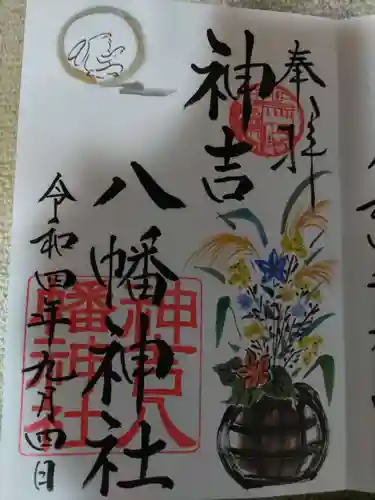 奉拝
神吉
八幡神社
令和四年九月四日
神吉八
幡神社